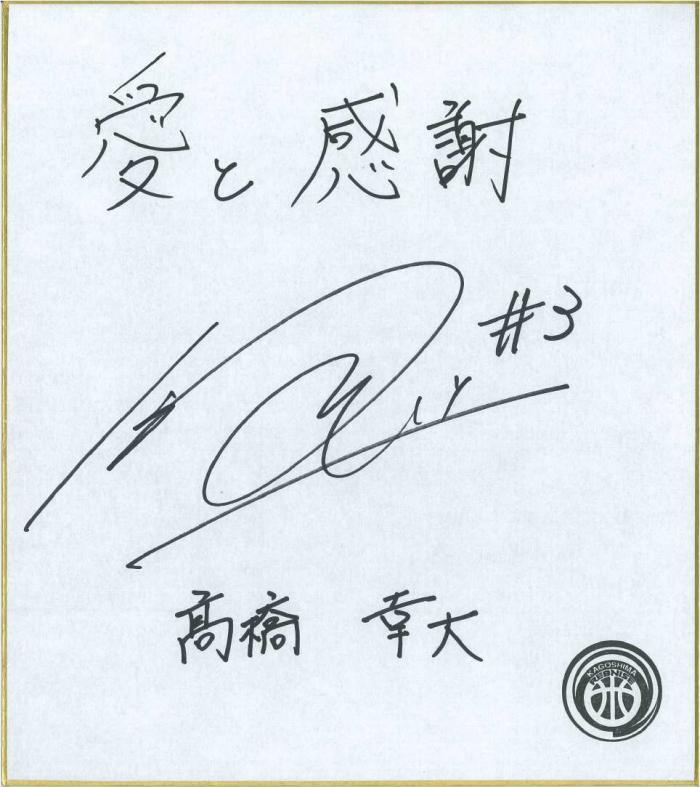 愛と感謝
#3
髙橋 幸大
KAGOSHIMA
REBNISE